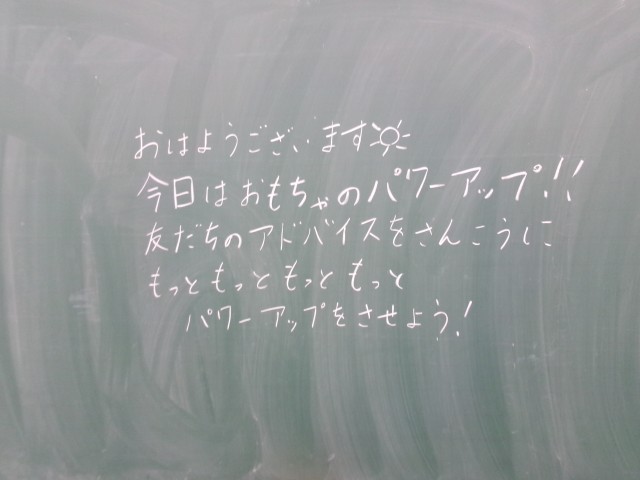 おはようございます☀
今日はおもちゃのパワーアップ!!
友だちのアドバイスをさんこうに
もっともっともっともっと
パワーアップをさせよう!